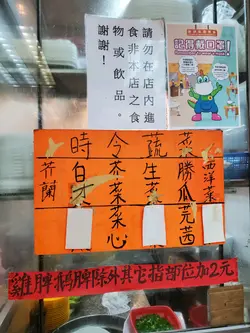 請勿在店內進
食非本店之食
物或飲品。
謝謝！
記得戴口罩!
時令蔬菜
芥蘭
白菜
菜心
生菜
勝瓜芫茜
西洋菜
雞脾鵝脾除外其它指部位加2元